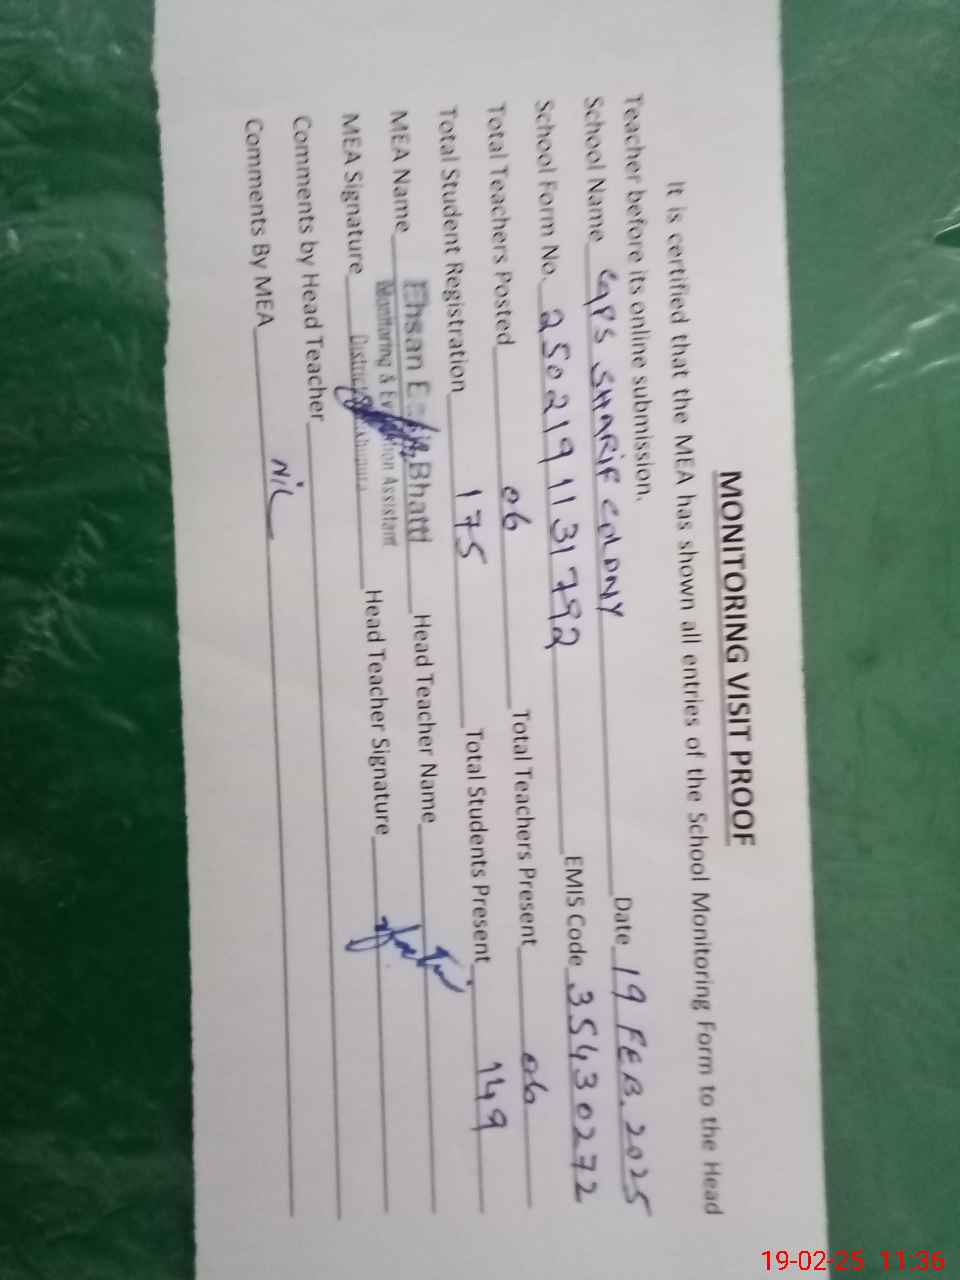 MONITORING VISIT PROOF
It is certified that the MEA has shown all entries of the School Monitoring Form to the Head
Teacher before its online submission.
School Name GGPS SHARIF COLONY Date 19 FEB. 2025
School Form No. 2502191131792 EMIS Code 35430272
Total Teachers Posted 06 Total Teachers Present 06
Total Student Registration 175 Total Students Present 149
MEA Name Ehsan Bhatti Head Teacher Name
Monitoring & Assistant
MEA Signature District Head Teacher Signature
Comments by Head Teacher
Comments By MEA NiL
19-02-25 11:36